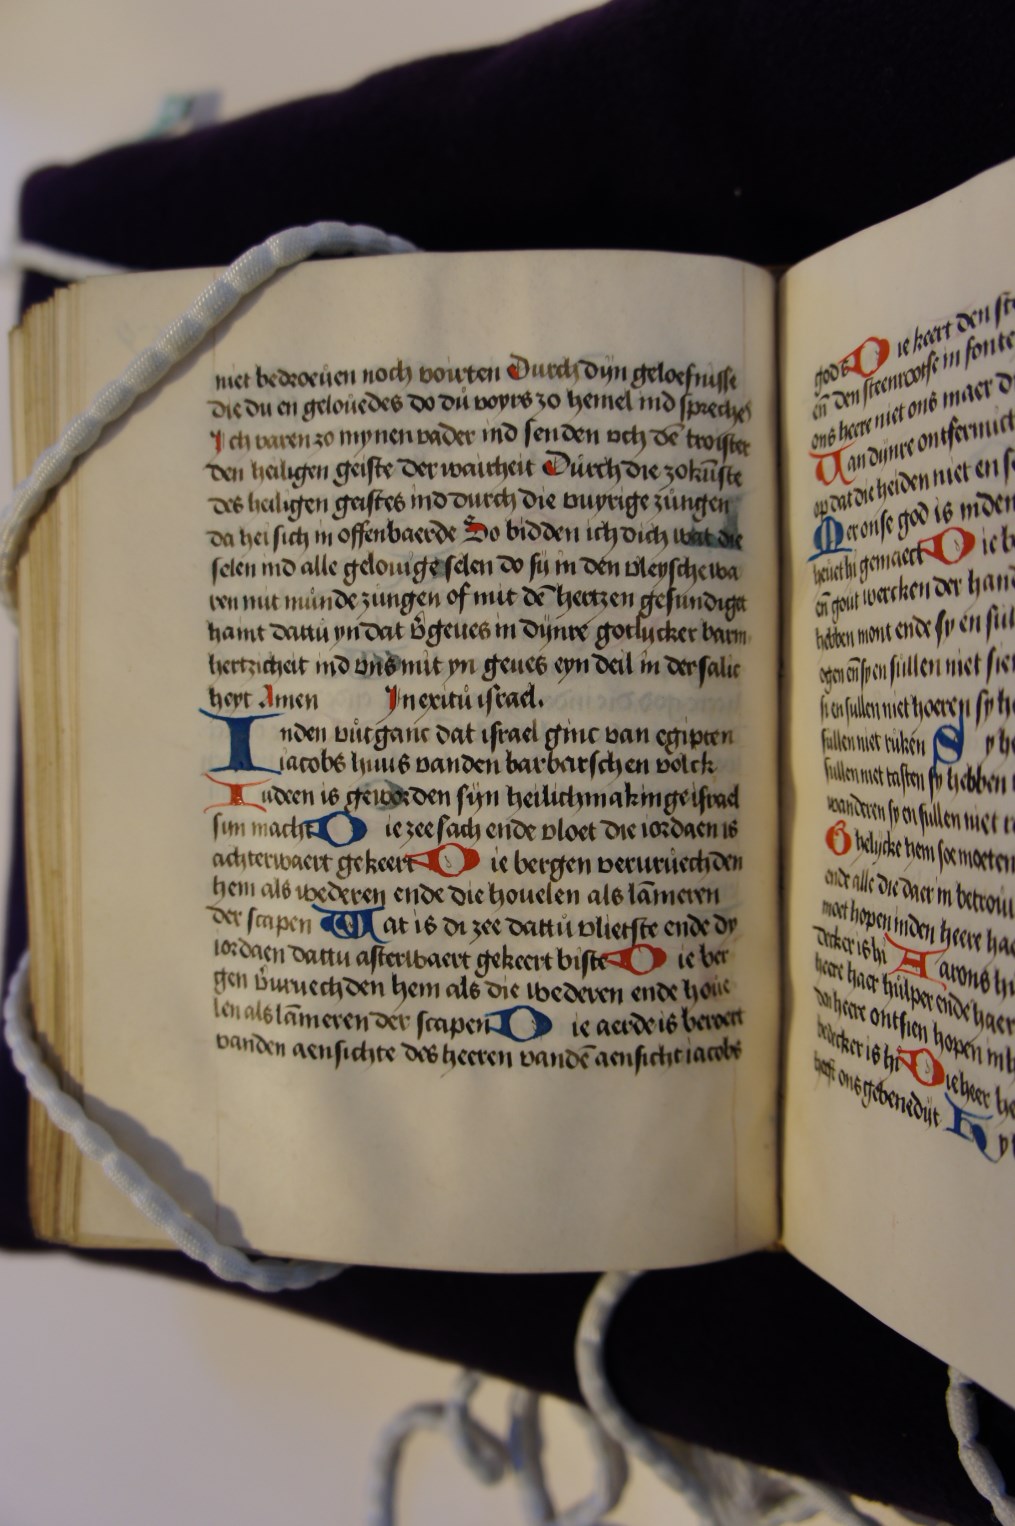 niet bedroeuen noch vorten Durch dijn geloefnisse
die du en gelouedes do dů voyrs zo hemel ind spreches
Ich varen zo mynen vader ind senden vch dē troister
den heiligen geiste der wairheit Durch die zokūste
des heiligen geistes ind durch die vuyrige zungen
da hei sich in offenbaerde So bidden ich dich wat die
selen ind alle gelouige selen do sy in den vleysche wa
ren mit munde zungen of mit dē hertzen gesundiget
haint dattu yn dat v̄geues in dynre gotlicker barm
hertzicheit ind vns mit yn geues eyn deil in der salic
heyt Amen In exitu israel.
Inden vůtganc dat israel ginc van egipten
iacobs huus vanden barbarschen volck
Iudeen is geworden sijn heilichmakinge israel
sijn macht Die zee sach ende vloet die iordaen is
achterwaert gekeert Die bergen veruruechden
hem als wederen ende die houelen als lāmeren
der scapen Wat is di zee dattu vlietste ende dy
iordaen dattu afterwaert gekeert biste Die ber
gen v̄uruechden hem als die wederen ende houe
len als lāmeren der scapen Die aerde is beroert
vanden aensichte des heeren vandē aensicht iacobs
gods Die keert den
en̄ den steenrootse in fonte
ons heere niet ons maer
Van dijnre ontfermich
op dat die heiden niet en
Mer onse god is inden
heuet hi gemaect Die
en̄ gout wercken der han
hebben mont ende sy en sul
ogen en̄ sy en sullen niet sien
si en sullen niet hoeren sy
sullen niet ruken Sy
sullen niet tasten sy hebben
wanderen sy en sullen niet
Ghelijcke hem soe moeten
ende alle die daer in betrou
moet hopen inden heere
decker is hi Aarons
heere haer hulper ende haer
den heere ontsien hopen in
bedecker is hi Die heer
heeft ons gebenedijt